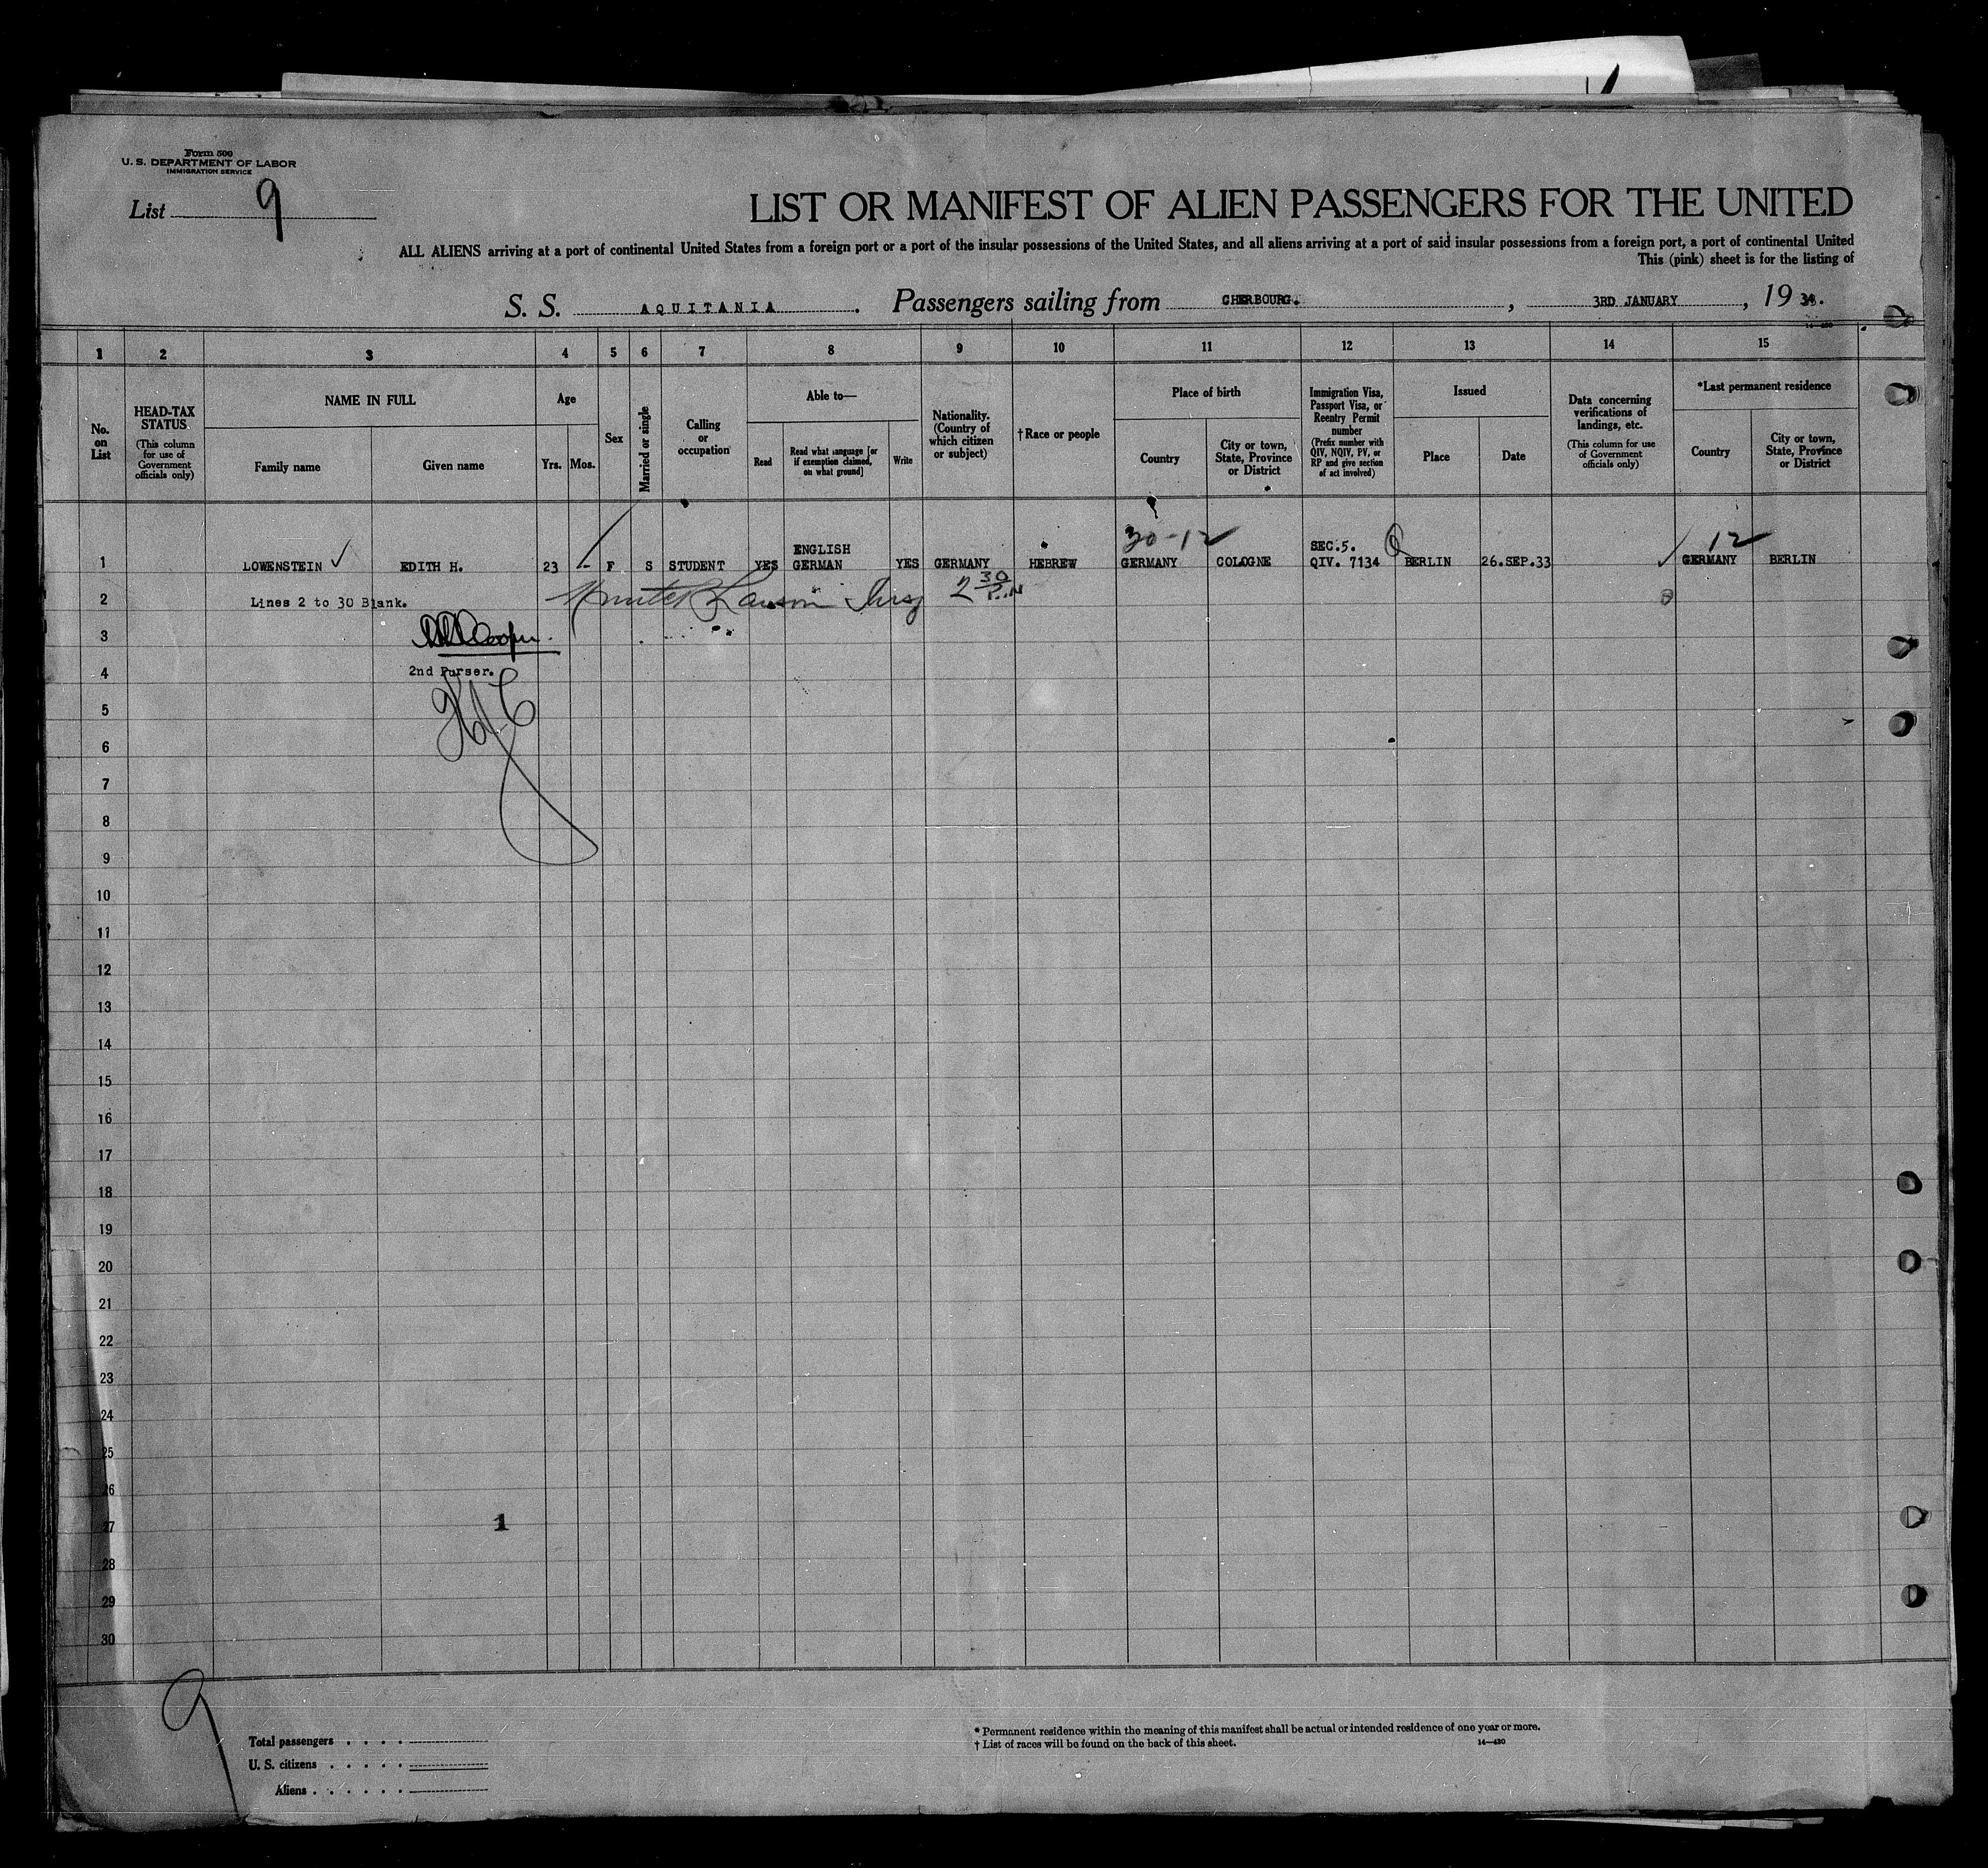 Form 500
U. S. DEPARTMENT OF LABOR
IMMIGRATION SERVICE
List 9
LIST OR MANIFEST OF ALIEN PASSENGERS FOR THE UNITED
ALL ALIENS arriving at a port of continental United States from a foreign port or a port of the insular possessions of the United States, and all aliens arriving at a port of said insular possessions from a foreign port, a port of continental United
This (pink) sheet is for the listing of
S. S. AQUITANIA. Passengers sailing from CHERBOURG. , 3RD JANUARY , 19 34.
14—430
1 2 3 4 5 6 7 8 9 10 11 12 13 14 15
No. on List
HEAD-TAX STATUS
(This column for use of Government officials only)
NAME IN FULL
Family name
Given name
Age
Yrs.
Mos.
Sex
Married or single
Calling or occupation
Able to—
Read
Read what language [or if exemption claimed, on what ground]
Write
Nationality. (Country of which citizen or subject)
†Race or people
Place of birth
Country
City or town, State, Province or District
Immigration Visa, Passport Visa, or Reentry Permit number
(Prefix number with QIV, NQIV, PV, or RP and give section of act involved)
Issued
Place
Date
Data concerning verifications of landings, etc.
(This column for use of Government officials only)
*Last permanent residence
Country
City or town, State, Province or District
30-12
12
ENGLISH
SEC.5.
1 LOWENSTEIN EDITH H. 23 - F S STUDENT YES GERMAN YES GERMANY HEBREW GERMANY COLOGNE QIV. 7134 BERLIN 26.SEP.33 GERMANY BERLIN
2 Lines 2 to 30 Blank. 2 30 P.M
3
2nd Purser.
4
5
6
7
8
9
10
11
12
13
14
15
16
17
18
19
20
21
22
23
24
25
26
27 1
28
29
30
9
Total passengers . . . .
U. S. citizens . . . . .
Aliens . . . . . .
* Permanent residence within the meaning of this manifest shall be actual or intended residence of one year or more.
† List of races will be found on the back of this sheet.
14—430